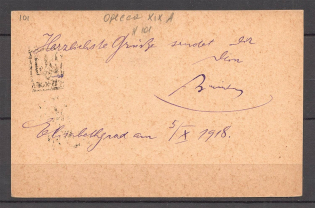 101
Odessa XIX A
№ 101
Herzlichste Grüße sendet Dir
Dein
Elisabethgrad am 5/X 1918.